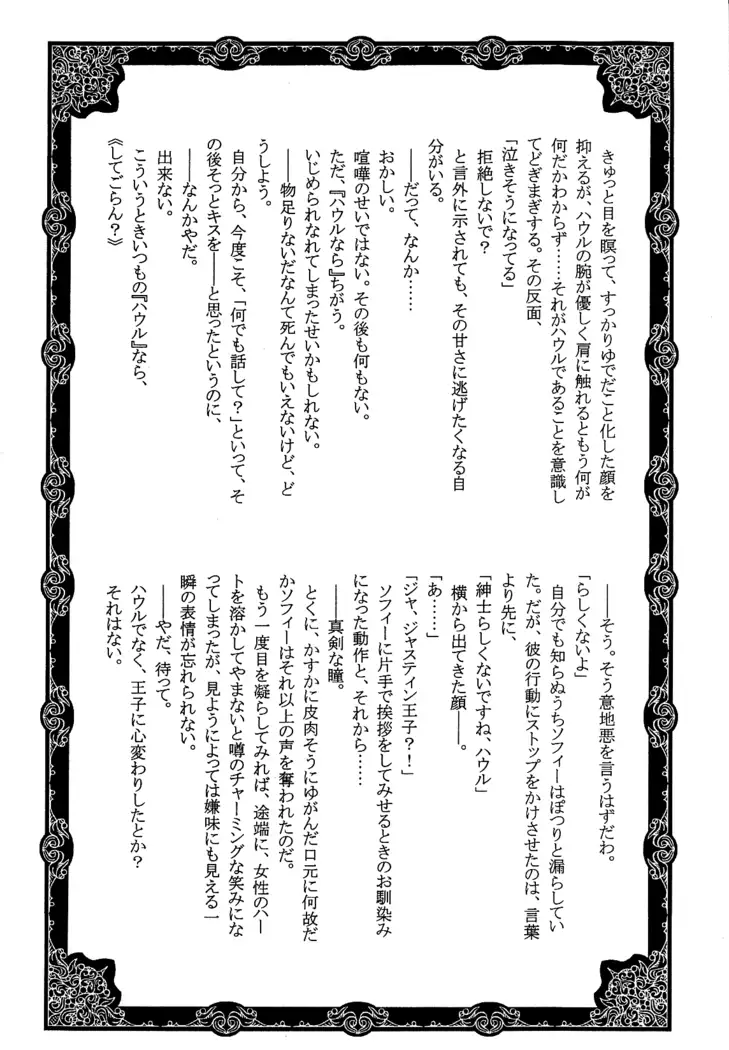 きゅっと目を瞑って、すっかりゆでだこと化した顔を
抑えるが、ハウルの腕が優しく肩に触れるともう何が
何だかわからず……それがハウルであることを意識し
てどぎまぎする。その反面、
「泣きそうになってる」
拒絶しないで？
と言外に示されても、その甘さに逃げたくなる自
分がいる。
――だって、なんか……
おかしい。
喧嘩のせいではない。その後も何もない。
ただ、『ハウルなら』ちがう。
いじめられなれてしまったせいかもしれない。
――物足りないだなんて死んでもいえないけど、ど
うしよう。
自分から、今度こそ、「何でも話して？」といって、そ
の後そっとキスを――と思ったというのに、
――なんかやだ。
出来ない。
こういうときいつもの『ハウル』なら、
《してごらん？》
――そう。そう意地悪を言うはずだわ。
「らしくないよ」
自分でも知らぬうちソフィーはぽつりと漏らしてい
た。だが、彼の行動にストップをかけさせたのは、言葉
より先に、
「紳士らしくないですね、ハウル」
横から出てきた顔――。
「あ……」
「ジャ、ジャスティン王子？！」
ソフィーに片手で挨拶をしてみせるときのお馴染み
になった動作と、それから……
――真剣な瞳。
とくに、かすかに皮肉そうにゆがんだ口元に何故だ
かソフィーはそれ以上の声を奪われたのだ。
もう一度目を凝らしてみれば、途端に、女性のハー
トを溶かしてやまないと噂のチャーミングな笑みにな
ってしまったが、見ようによっては嫌味にも見える一
瞬の表情が忘れられない。
――やだ、待って。
ハウルでなく、王子に心変わりしたとか？
それはない。